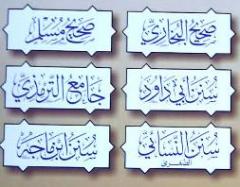 صحيح البخاري
صحيح مسلم
سنن أبي داود
جامع الترمذي
سنن النسائي
الصغرى
سنن ابن ماجه